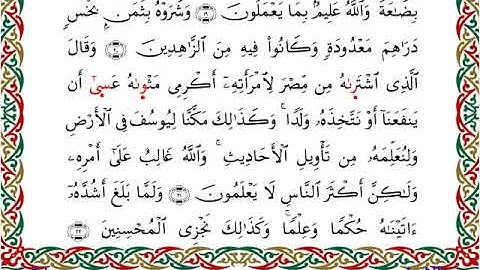 بِضَـٰعَةً وَٱللَّهُ عَلِيمٌۢ بِمَا يَعْمَلُونَ ۝١٩ وَشَرَوْهُ بِثَمَنٍۭ بَخْسٍ
دَرَٰهِمَ مَعْدُودَةٍ وَكَانُوا۟ فِيهِ مِنَ ٱلزَّٰهِدِينَ ۝٢٠ وَقَالَ
ٱلَّذِى ٱشْتَرَىٰهُ مِن مِّصْرَ لِٱمْرَأَتِهِۦٓ أَكْرِمِى مَثْوَىٰهُ عَسَىٰٓ أَن
يَنفَعَنَآ أَوْ نَتَّخِذَهُۥ وَلَدًا ۚ وَكَذَٰلِكَ مَكَّنَّا لِيُوسُفَ فِى ٱلْأَرْضِ
وَلِنُعَلِّمَهُۥ مِن تَأْوِيلِ ٱلْأَحَادِيثِ ۚ وَٱللَّهُ غَالِبٌ عَلَىٰٓ أَمْرِهِۦ
وَلَـٰكِنَّ أَكْثَرَ ٱلنَّاسِ لَا يَعْلَمُونَ ۝٢١ وَلَمَّا بَلَغَ أَشُدَّهُۥٓ
ءَاتَيْنَـٰهُ حُكْمًا وَعِلْمًا ۚ وَكَذَٰلِكَ نَجْزِى ٱلْمُحْسِنِينَ ۝٢٢